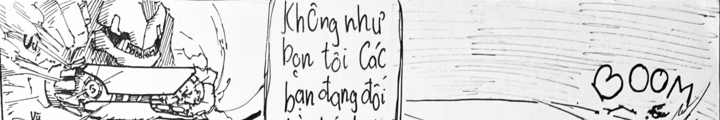 Vù
Vũ
Không như
bọn tôi Các
bạn đang đối
BOOM